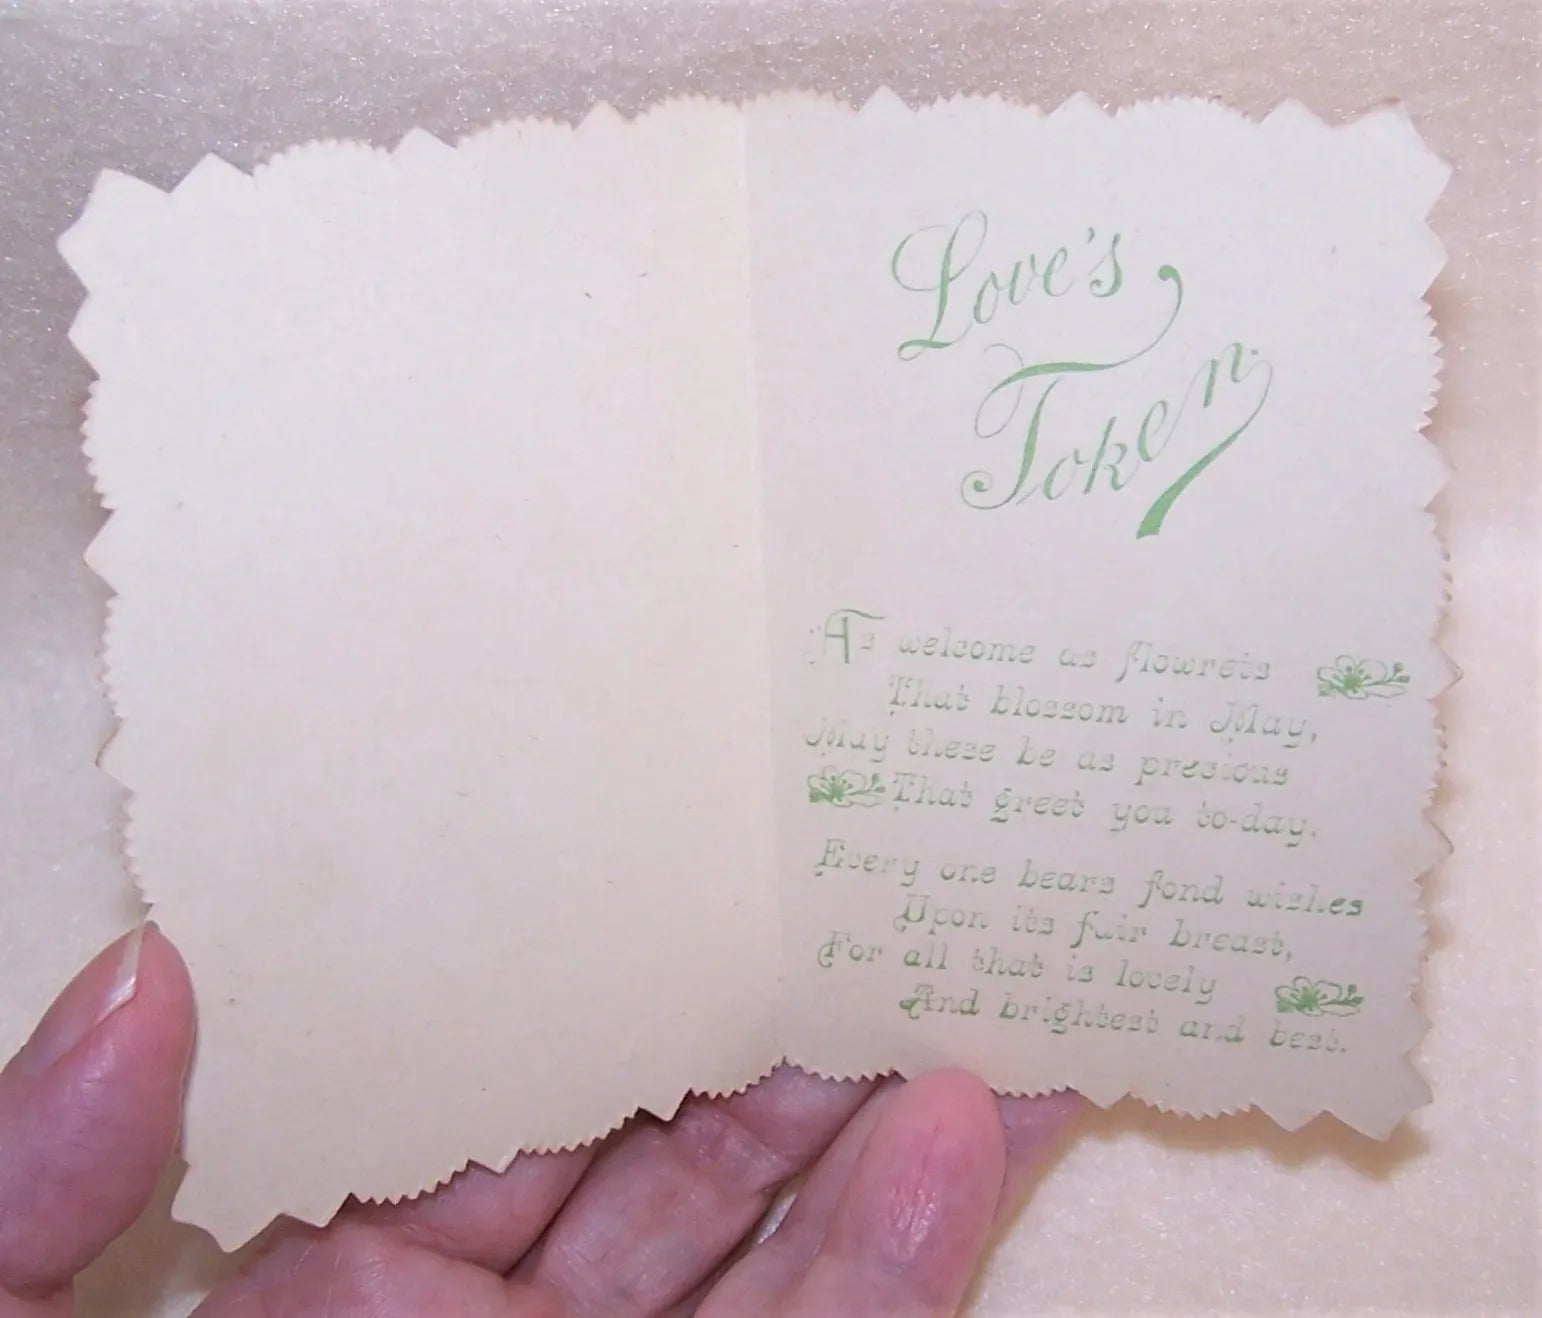 Love's
Token.
As welcome as flowrets
That blossom in May,
May these be as precious
That greet you to-day.
Every one bears fond wishes
Upon its fair breast,
For all that is lovely
And brightest and best.